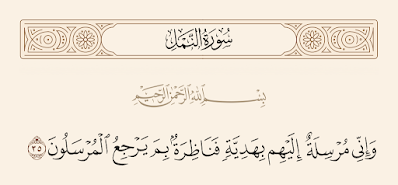 سُورَةُ النَّمۡلِ
بِسۡمِ ٱللَّهِ ٱلرَّحۡمَٰنِ ٱلرَّحِيمِ
وَإِنِّي مُرۡسِلَةٌ إِلَيۡهِم بِهَدِيَّةٖ فَنَاظِرَةُۢ بِمَ يَرۡجِعُ ٱلۡمُرۡسَلُونَ ٣٥